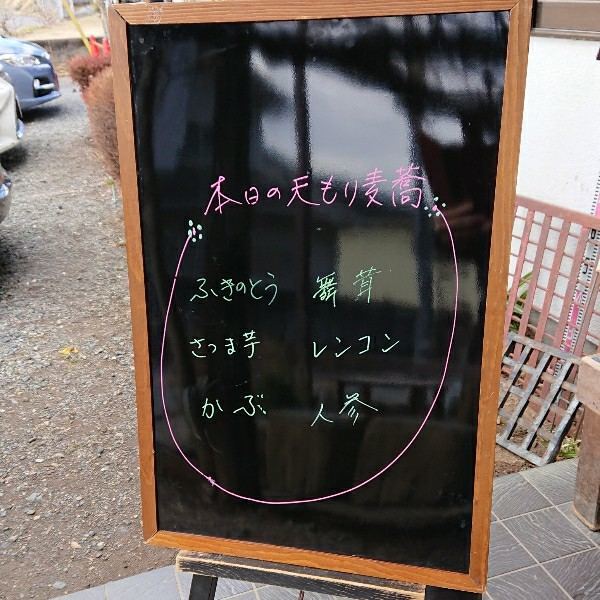 本日の天もり麦蕎
ふきのとう 舞茸
さつま芋 レンコン
かぶ 人参